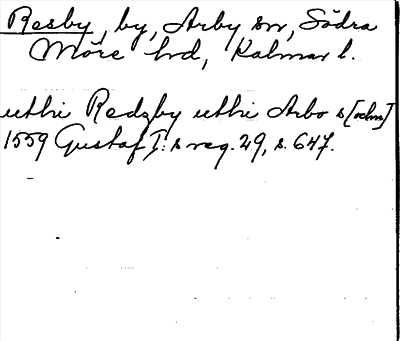 Resby, by, Arby sn, Södra
Möre hd, Kalmar l.
uthi Redzby uthi Arbo s[ochn]
1559 Gustaf I:s reg. 29, s. 647.